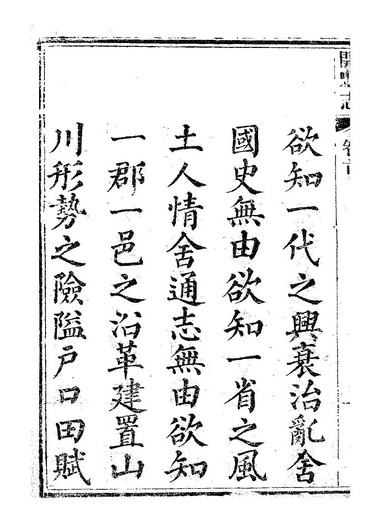 欲知一代之興衰治亂舍
國史無由欲知一省之風
土人情舍通志無由欲知
一郡一邑之沿革建置山
川形勢之險隘戶口田賦